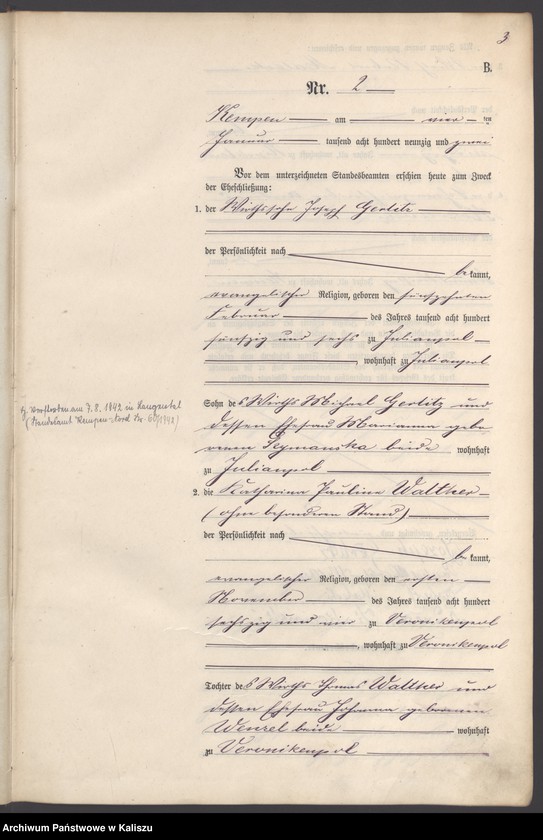 3
B.
Nr. 2
Kempen am vier ten
Januar tausend acht hundert neunzig und zwei
Vor dem unterzeichneten Standesbeamten erschien heute zum Zweck
der Eheschließung:
1. der Wirthssohn Joseph Gerlitz
der Persönlichkeit nach
be kannt,
evangelischer Religion, geboren den fünfzehnten
Februar des Jahres tausend acht hundert
fünfzig und sechs zu Julianpol
, wohnhaft zu Julianpol
Sohn des Wirths Michael Gerlitz und
dessen Ehefrau Marianna gebo
renen Szymanska beide wohnhaft
zu Julianpol
2. die Katharina Pauline Walther
(ohne besonderen Stand)
der Persönlichkeit nach
be kannt,
evangelischer Religion, geboren den ersten
November des Jahres tausend acht hundert
sechszig und vier zu Veronikenpol
, wohnhaft zu Veronikenpol
Tochter des Wirths Thomas Walther und
dessen Ehefrau Johanna geborenen
Wenzel beide wohnhaft
zu Veronikenpol
verstorben am 7. 8. 1942 in Langental
(Standesamt Kempen-Nord Nr. 60/1942)
Archiwum Państwowe w Kaliszu